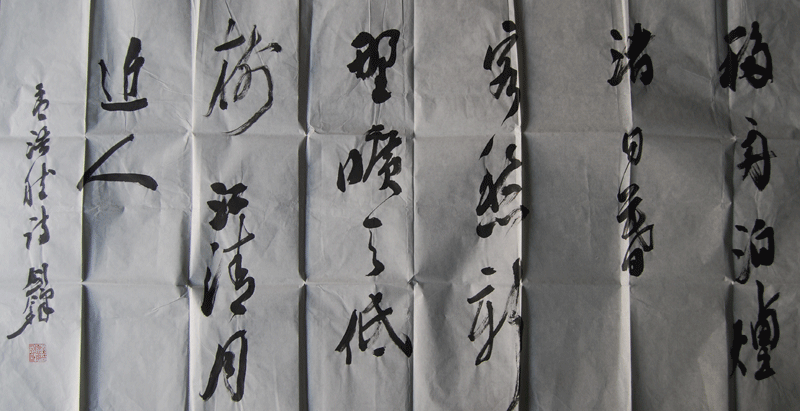 移舟泊煙
渚日暮
客愁新
野曠天低
樹江清月
近人
孟浩然詩